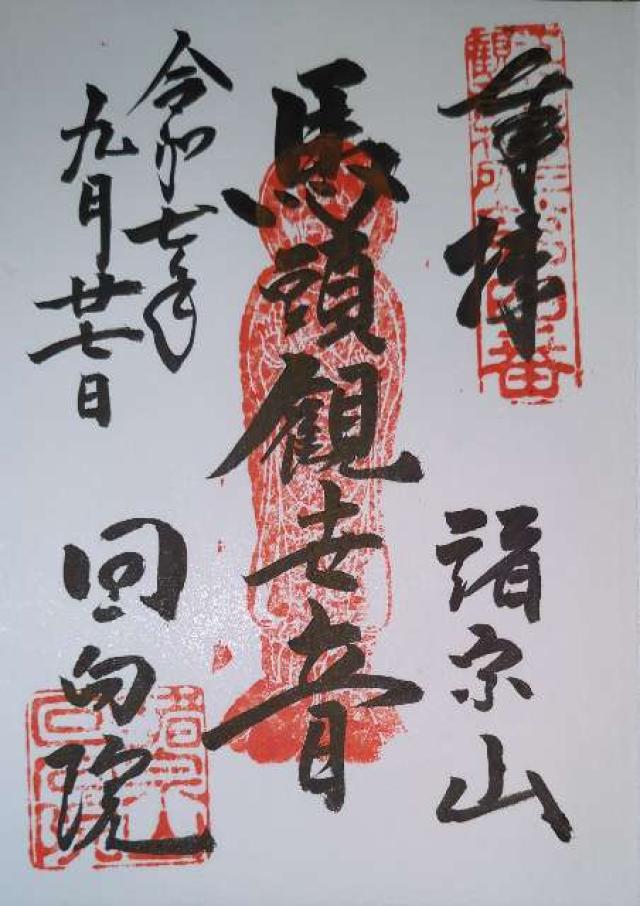 奉拝
諸宗山
馬頭観世音
令和七年
九月廿七日
回向院